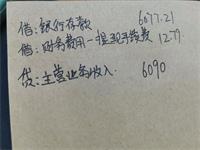 借：银行存款 6077.21
借：财务费用-提现手续费 12.79
贷：主营业务收入 6090